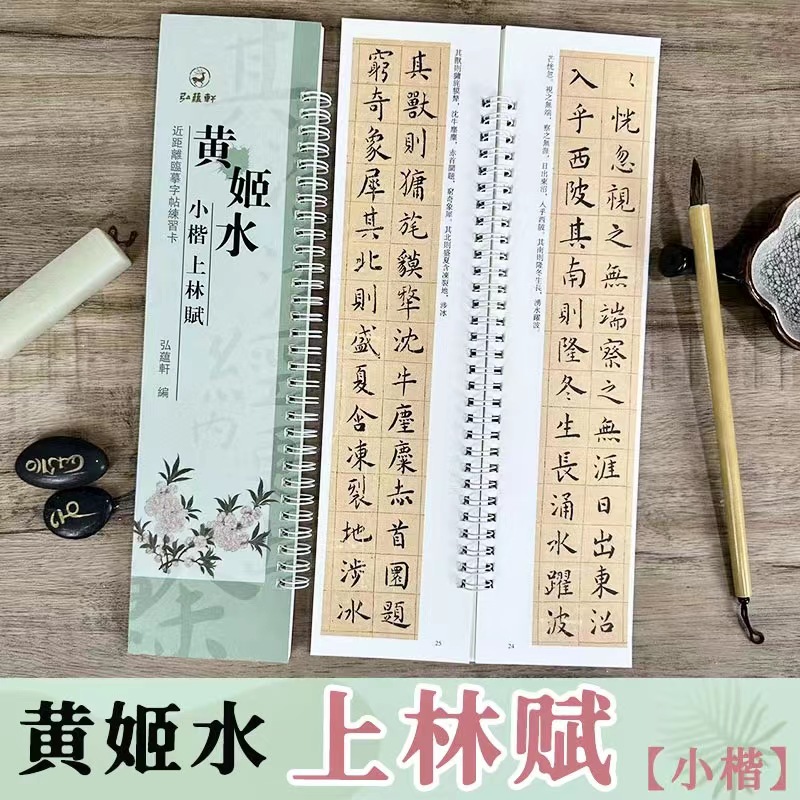 弘蘊軒
近距離臨摹字帖練習卡
黄姬水
小楷上林赋
弘蘊軒 编
芒恍忽，視之無端，察之無涯，日出東沼，入乎西陂，其南則隆冬生長，湧水躍波，
〻恍忽視之無端察之無涯日出東沼
入乎西陂其南則隆冬生長涌水躍波
24
其獸則㺎旄貘犛，沈牛麈麋，赤首圜題，窮奇象犀，其北則盛夏含凍裂地，涉冰
其獸則㺎旄貘犛沈牛麈麋赤首圜題
窮奇象犀其北則盛夏含凍裂地涉冰
25
黄姬水 上林赋【小楷】